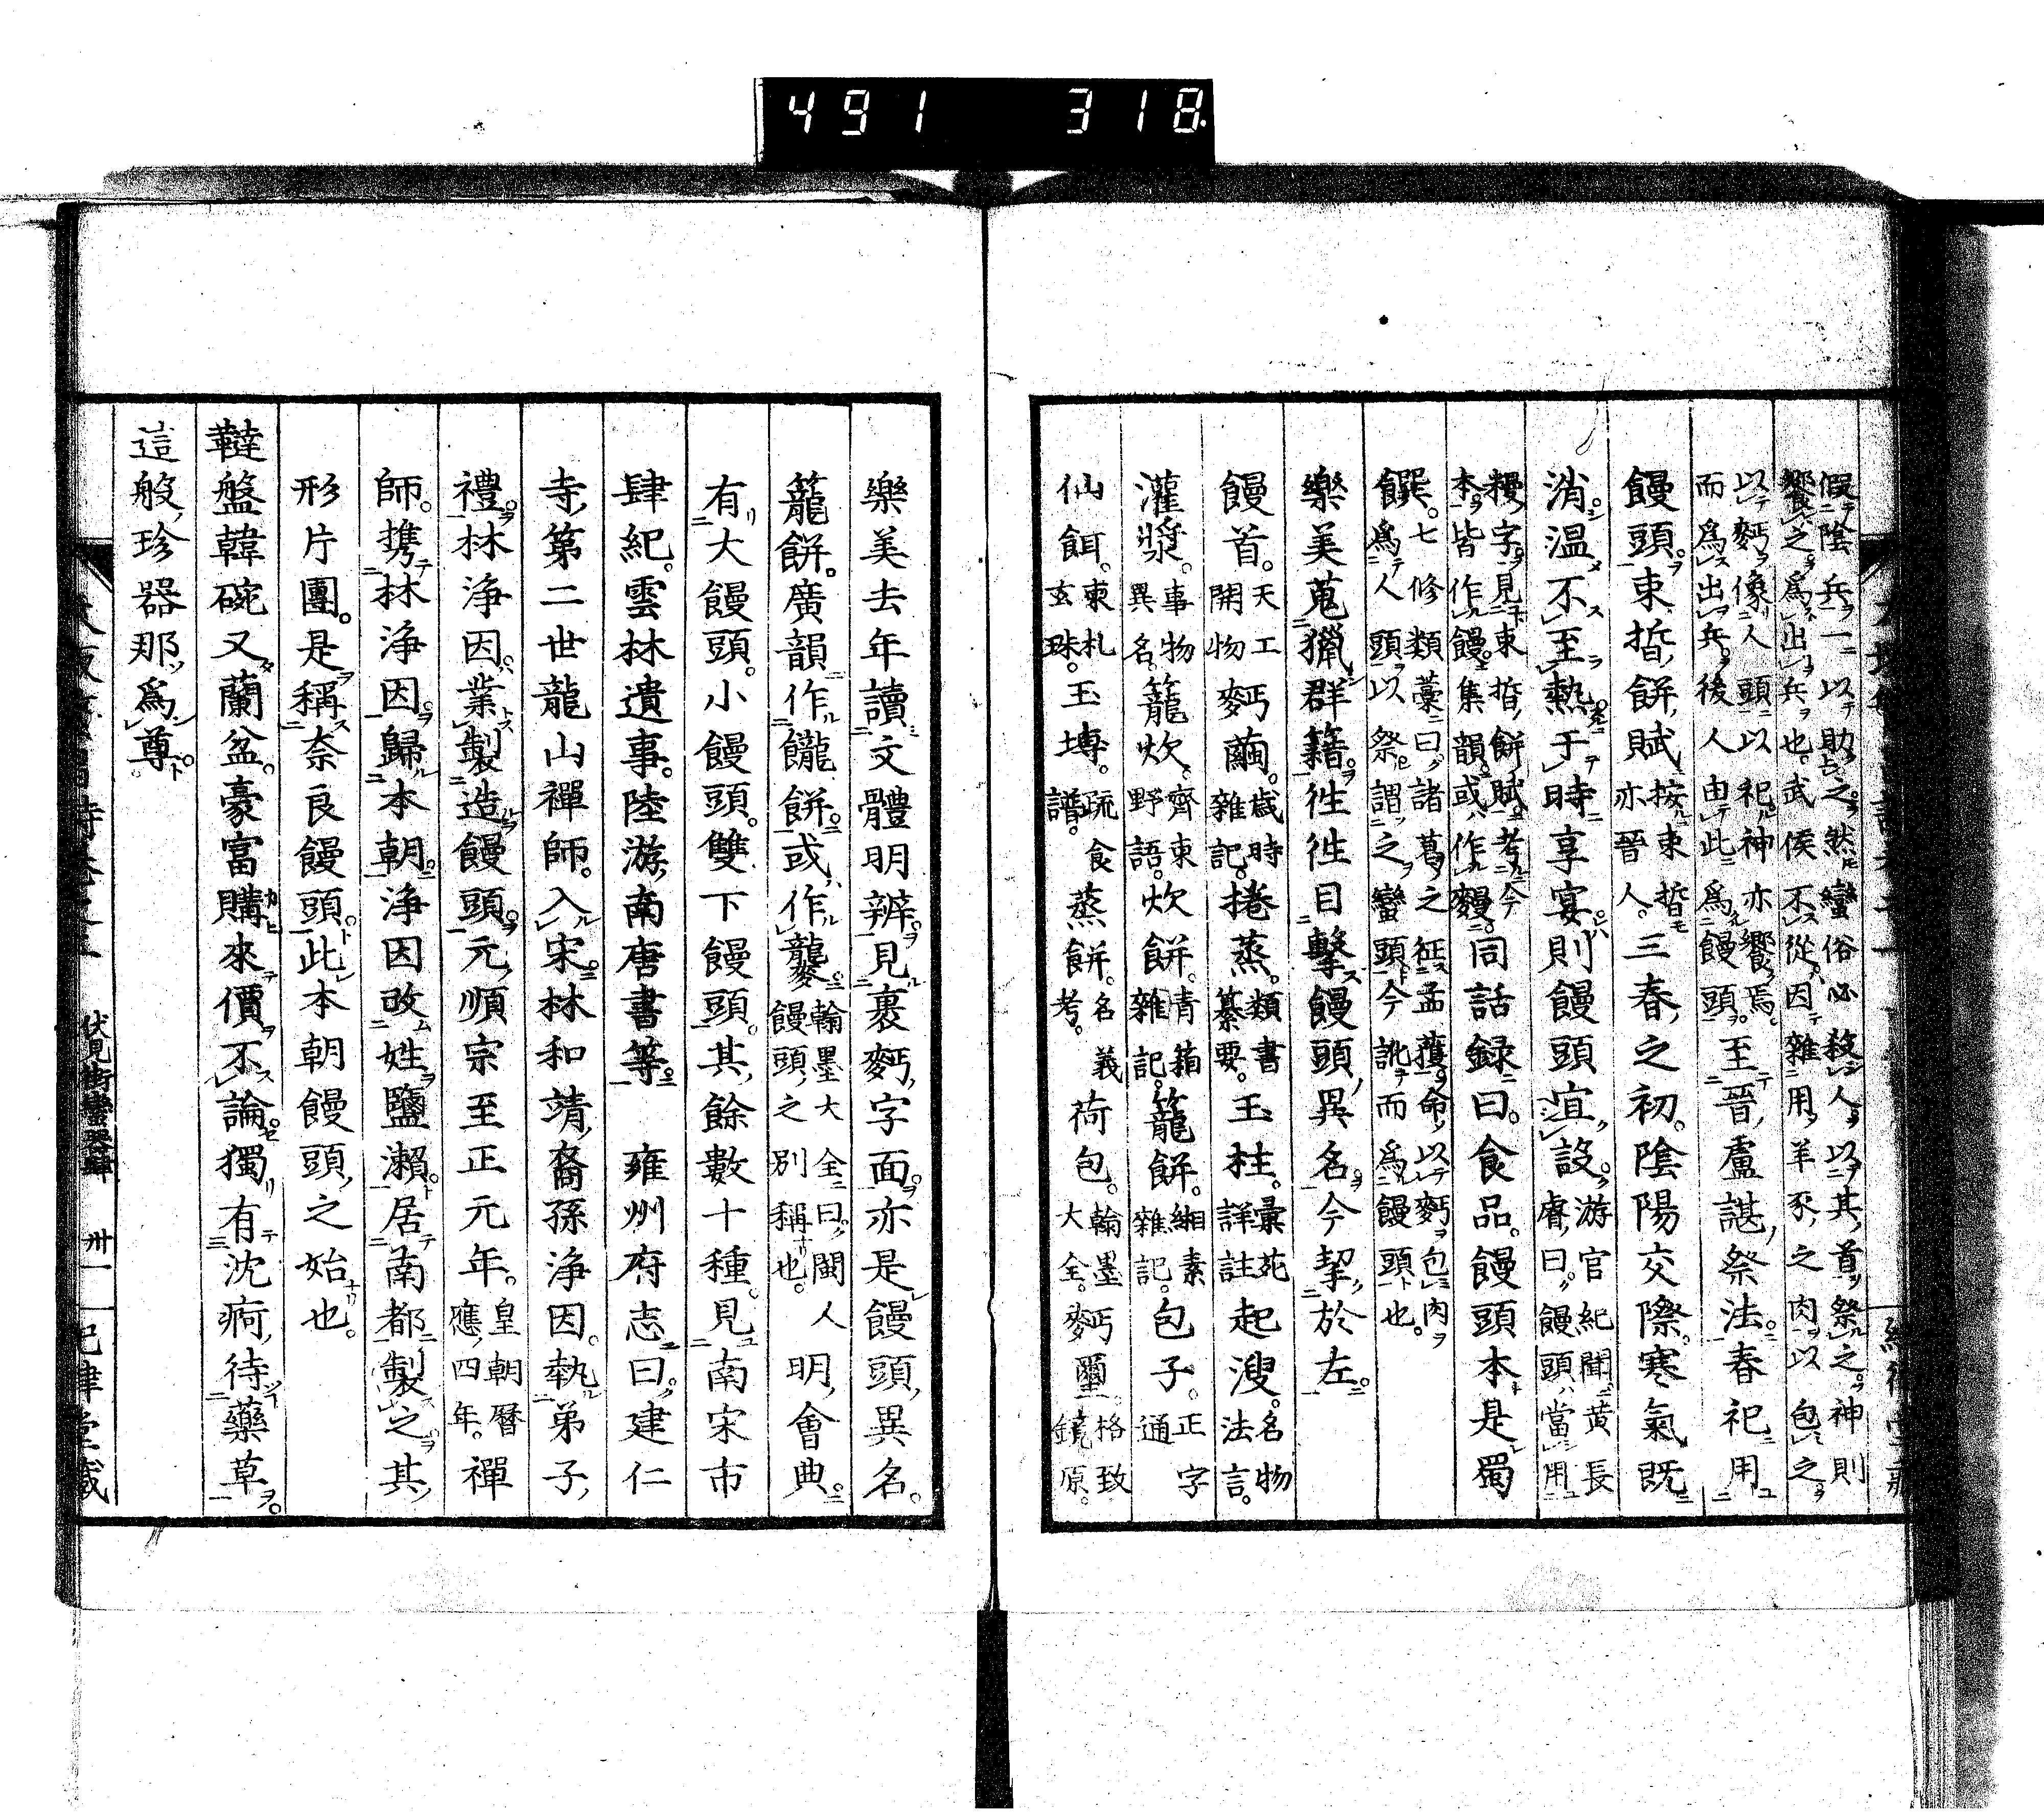 491 318
假陰兵一以助之然蠻俗必殺人以其首祭之神則
饗之爲出兵也武侯不從因雜用羊豕之肉以包之
以麪像人頭以祀神亦饗焉
而爲出兵後人由此爲饅頭至晉盧諶祭法春祀用
饅頭束晳餅賦按束晳亦晉人三春之初陰陽交際寒氣既
消溫不至熱于時享宴則饅頭宜設游官紀聞黃長睿曰饅頭當用
糭字見束晳餅賦考今本皆作饅集韻或作䊡同話錄曰食品饅頭本是蜀
饌七修類藁曰諸葛之征孟獲命以麪包肉爲人頭以祭謂之蠻頭今訛而爲饅頭也
樂美蒐獵群籍往往目擊饅頭異名今挈於左
饅首天工開物麪繭歲時雜記捲蒸類書纂要玉柱彙苑詳註起溲名物法言
灌漿事物異名籠炊齊東野語炊餅青箱雜記籠餅緗素雜記包子正字通
仙餌東札玄珠玉塼疏食譜蒸餅名義考荷包翰墨大全麪璽格致鏡原
樂美去年讀文體明辨見裹麪字面亦是饅頭異名
籠餅廣韻作䉪餅或作䴑翰墨大全曰饅頭之別稱也閩人明會典
有大饅頭小饅頭雙下饅頭其餘數十種見南宋市
肆紀雲林遺事陸游南唐書等 雍州府志曰建仁
寺第二世龍山禪師入宋林和靖裔孫淨因執弟子
禮林淨因業製造饅頭元順宗至正元年皇朝曆應四年禪
師攜林淨因歸本朝淨因改姓鹽瀨居南都製之其
形片團是稱奈良饅頭此本朝饅頭之始也
韃盤韓碗又蘭盆豪富購來價不論獨有沈痾待藥草
這般珍器那爲尊
伏見街蠻器肆 卅一